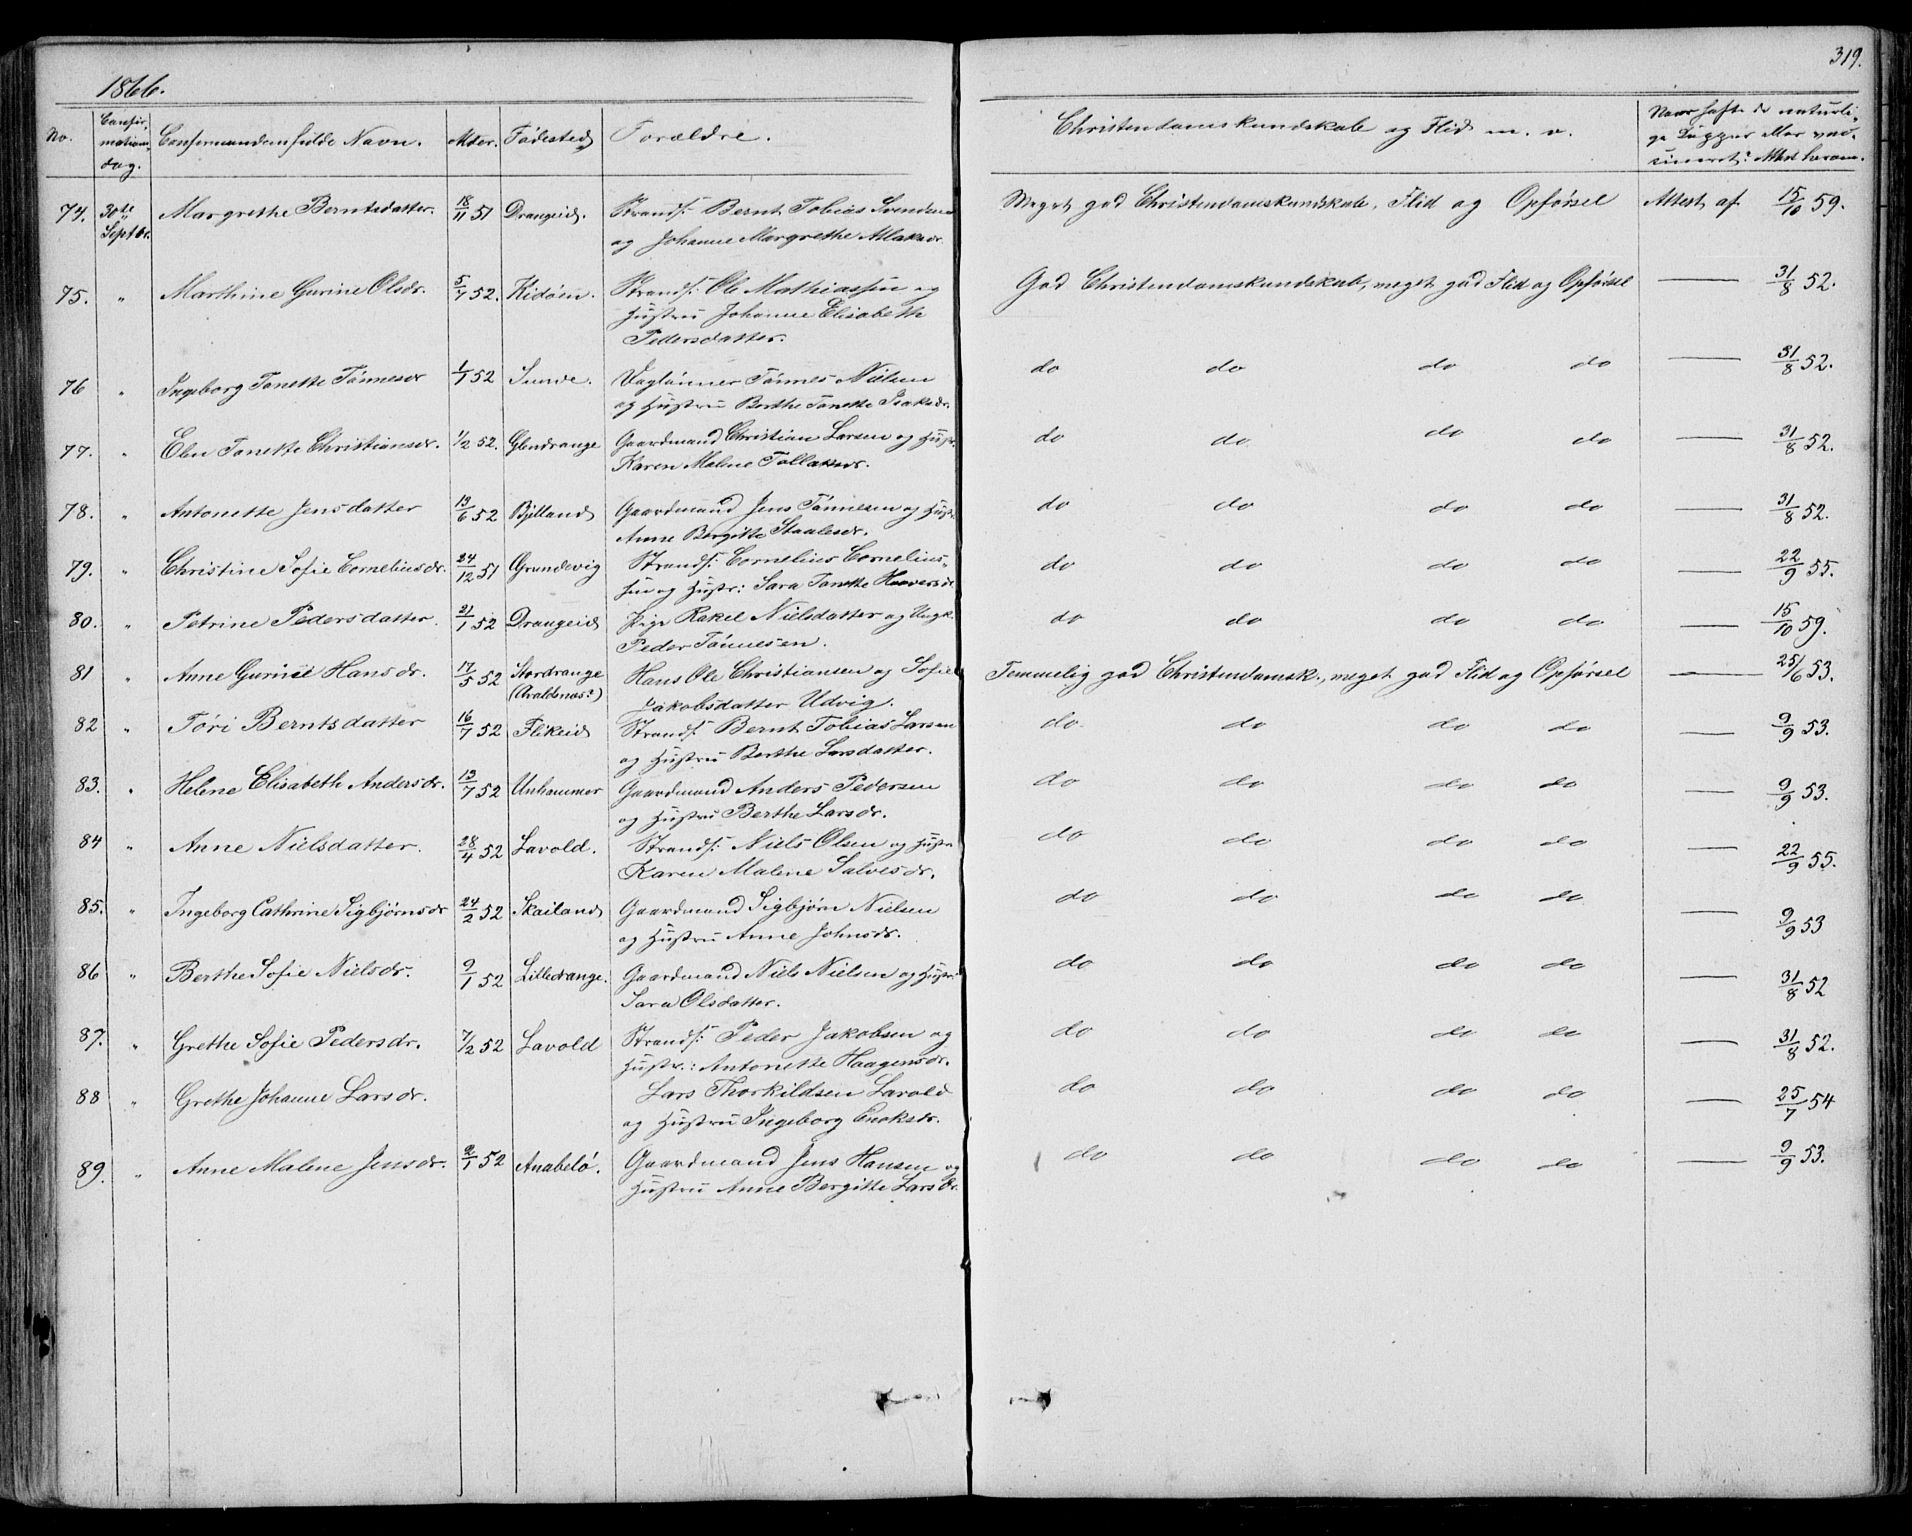 1866.
319.
No. Confir- mations dag. Confirmandens fulde Navn. Alder. Fødested Forældre. Christendomskundskab og Flid m. v. Naar havte de naturlige Kopper eller vaccineret? Attest herom.
74. 30te Septbr. Margrethe Berntsdatter. 18/11 51 Drangeid. Strands: Bernt Tobias Svendsen Meget god Christendomskundskab, Flid og Opførsel Attest af 15/10 59.
og Johanne Margrethe Atlaksdr.
75. " Marthine Gurine Olsdr. 5/7 52. Kidöen. Strands: Ole Mathiassen og God Christendomskundskab, meget god Flid og Opførsel — 31/8 52.
Hustru Johanne Elisabeth
Pedersdatter.
76 " Ingeborg Tanette Tönnesdr 1/7 52 Sunde. Daglönner Tönnes Nielsen do do do do — 31/8 52.
og Hustru Berthe Tanette Isaksdr.
77. " Elen Tanette Christiansdr. 1/2 52. Glendrange Gaardmand Christian Larsen og Hustr. do do do do — 31/8 52.
Karen Malene Tollaksdr.
78. " Antonette Jensdatter 13/6 52 Bjelland Gaardmand Jens Tönnesen og Hustr. do do do do — 31/8 52.
Anne Bergitte Staalesdr.
79. " Christine Sofie Corneliusdr. 24/12 51 Grundevig Strands: Cornelius Cornelius- do do do do — 22/9 55.
sen og Hustr: Sara Tanette Haaversdr
80. " Petrine Pedersdatter. 21/1 52 Drangeid Pige Rakel Nielsdatter og Ungk. do do do do — 15/10 59.
Peder Tönnesen.
81 " Anne Gurine Hansdr. 17/5 52 Stordrange Hans Ole Christiansen og Sofie Temmelig god Christendomsk., meget god Flid og Opførsel — 25/6 53.
(Araldsnæs?) Jakobsdatter Udvig.
82 " Töri Berntsdatter 16/7 52 Flikeid Strands: Bernt Tobias Larsen do do do do — 9/9 53.
og Hustru Berthe Larsdatter.
83. " Helene Elisabeth Andersdr. 13/7 52 Unhammer Gaardmand Anders Pedersen do do do do — 9/9 53.
og Hustru Berthe Larsdr.
84 " Anne Nielsdatter. 28/4 52 Lavold. Strands: Niels Olsen og Hustr do do do do — 22/9 55.
Karen Malene Salvesdr.
85. " Ingeborg Cathrine Sigbjørnsdr 24/2 52 Skailand Gaardmand Sigbjørn Nielsen do do do do — 9/9 53
og Hustru Anne Johnsdr.
86 " Berthe Sofie Nielsdr. 9/1 52 Lilledrange. Gaardmand Niels Nielsen og Hustr. do do do do — 31/8 52
Sara Olsdatter.
87. " Grethe Sofie Pedersdr. 7/2 52 Lavold Strands: Peder Jakobsen og do do do do — 31/8 52.
Hustr.: Antonette Haagensdr.
88 " Grethe Johanne Larsdr. Lars Thorkildsen Lavold do do do do — 25/7 54
og Hustru Ingeborg Enoksdr.
89. " Anne Malene Jensdr. 2/1 52 Anabelö. Gaardmand Jens Hansen og do do do do — 9/9 53.
Hustru Anne Bergitte Larsdr.